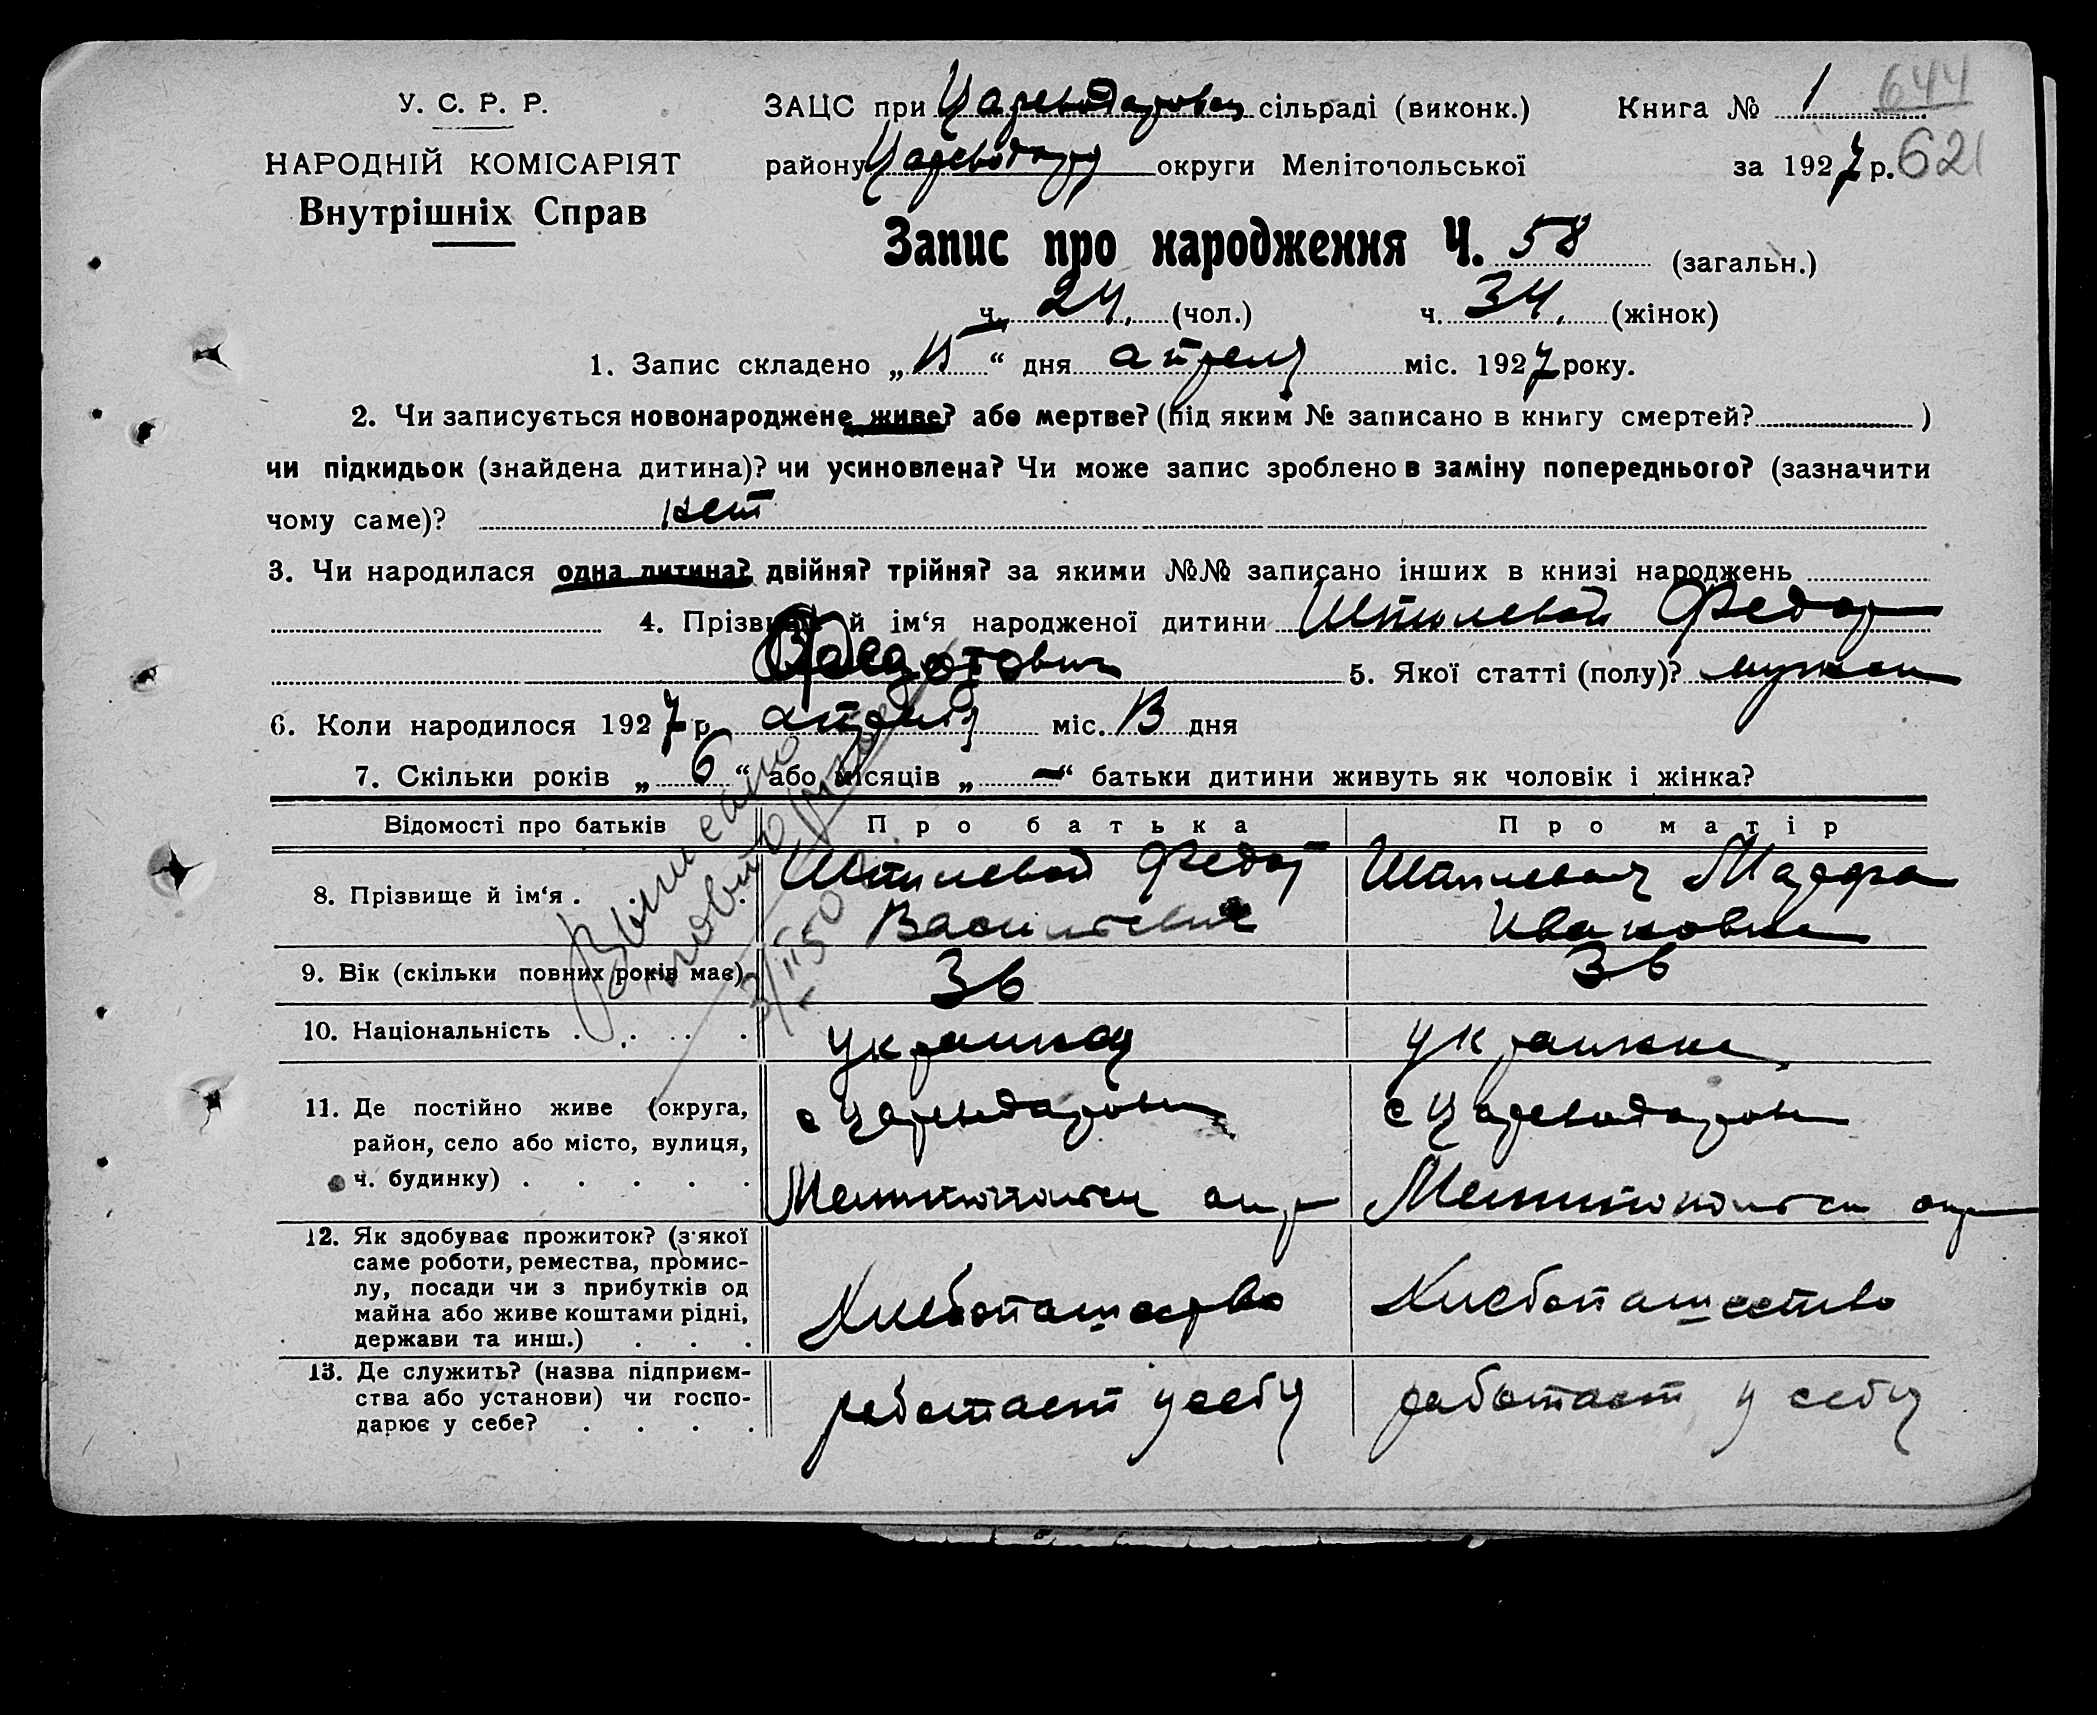 У. С. Р. Р.
НАРОДНІЙ КОМІСАРІЯТ
Внутрішніх Справ
ЗАЦС при Цареводаровск сільраді (виконк.) Книга № 1 644
району Цареводар округи Мелітопольської за 1927 р. 621
Запис про народження Ч. 58 (загальн.)
ч. 24. (чол.) ч. 34. (жінок)
1. Запис складено „15“ дня апреля міс. 1927 року.
2. Чи записується новонароджене живе? або мертве? (під яким № записано в книгу смертей? )
чи підкидьок (знайдена дитина)? чи усиновлена? Чи може запис зроблено в заміну попереднього? (зазначити
чому саме)? нет
3. Чи народилася одна дитина? двійня? трійня? за якими №№ записано інших в книзі народжень
4. Прізвище й ім‘я народженої дитини Шпилевой Федор
Федотович 5. Якої статті (полу)? мужск
6. Коли народилося 1927 р. апреля міс. 13 дня
7. Скільки років „6“ або місяців „—“ батьки дитини живуть як чоловік і жінка?
Відомості про батьків Про батька Про матір
8. Прізвище й ім‘я . Шпилевой Федот Марфа
Васильевич Ивановна
9. Вік (скільки повних років має) 36 36
10. Національність . . . . . украинец украинка
11. Де постійно живе (округа, с Цареводаровка с Цареводаровка
район, село або місто, вулиця,
ч. будинку) . . . . . Мелитопольск окр Мелитопольск окр
12. Як здобуває прожиток? (з'якої
саме роботи, ремества, промис-
лу, посади чи з прибутків од
майна або живе коштами рідні, Хлебопашество Хлебопашество
держави та инш.) . . .
13. Де служить? (назва підприєм-
ства або установи) чи госпо- работает у себя работает у себя
дарює у себе? . . . .
Выписано
повторно
3/II 50